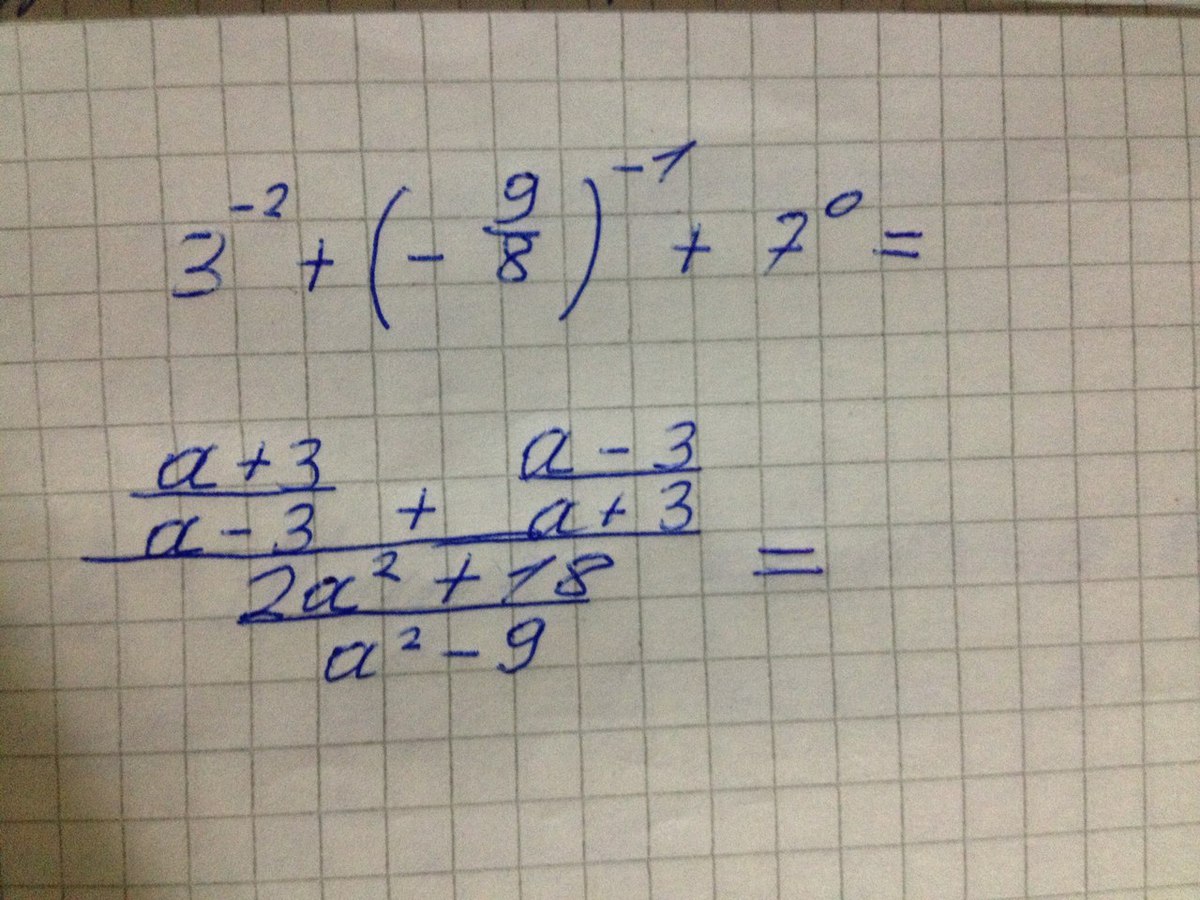 3⁻² + (- 9/8)⁻¹ + 7⁰ =
a + 3 a - 3
a - 3 + a + 3 =
2a² + 18
a² - 9